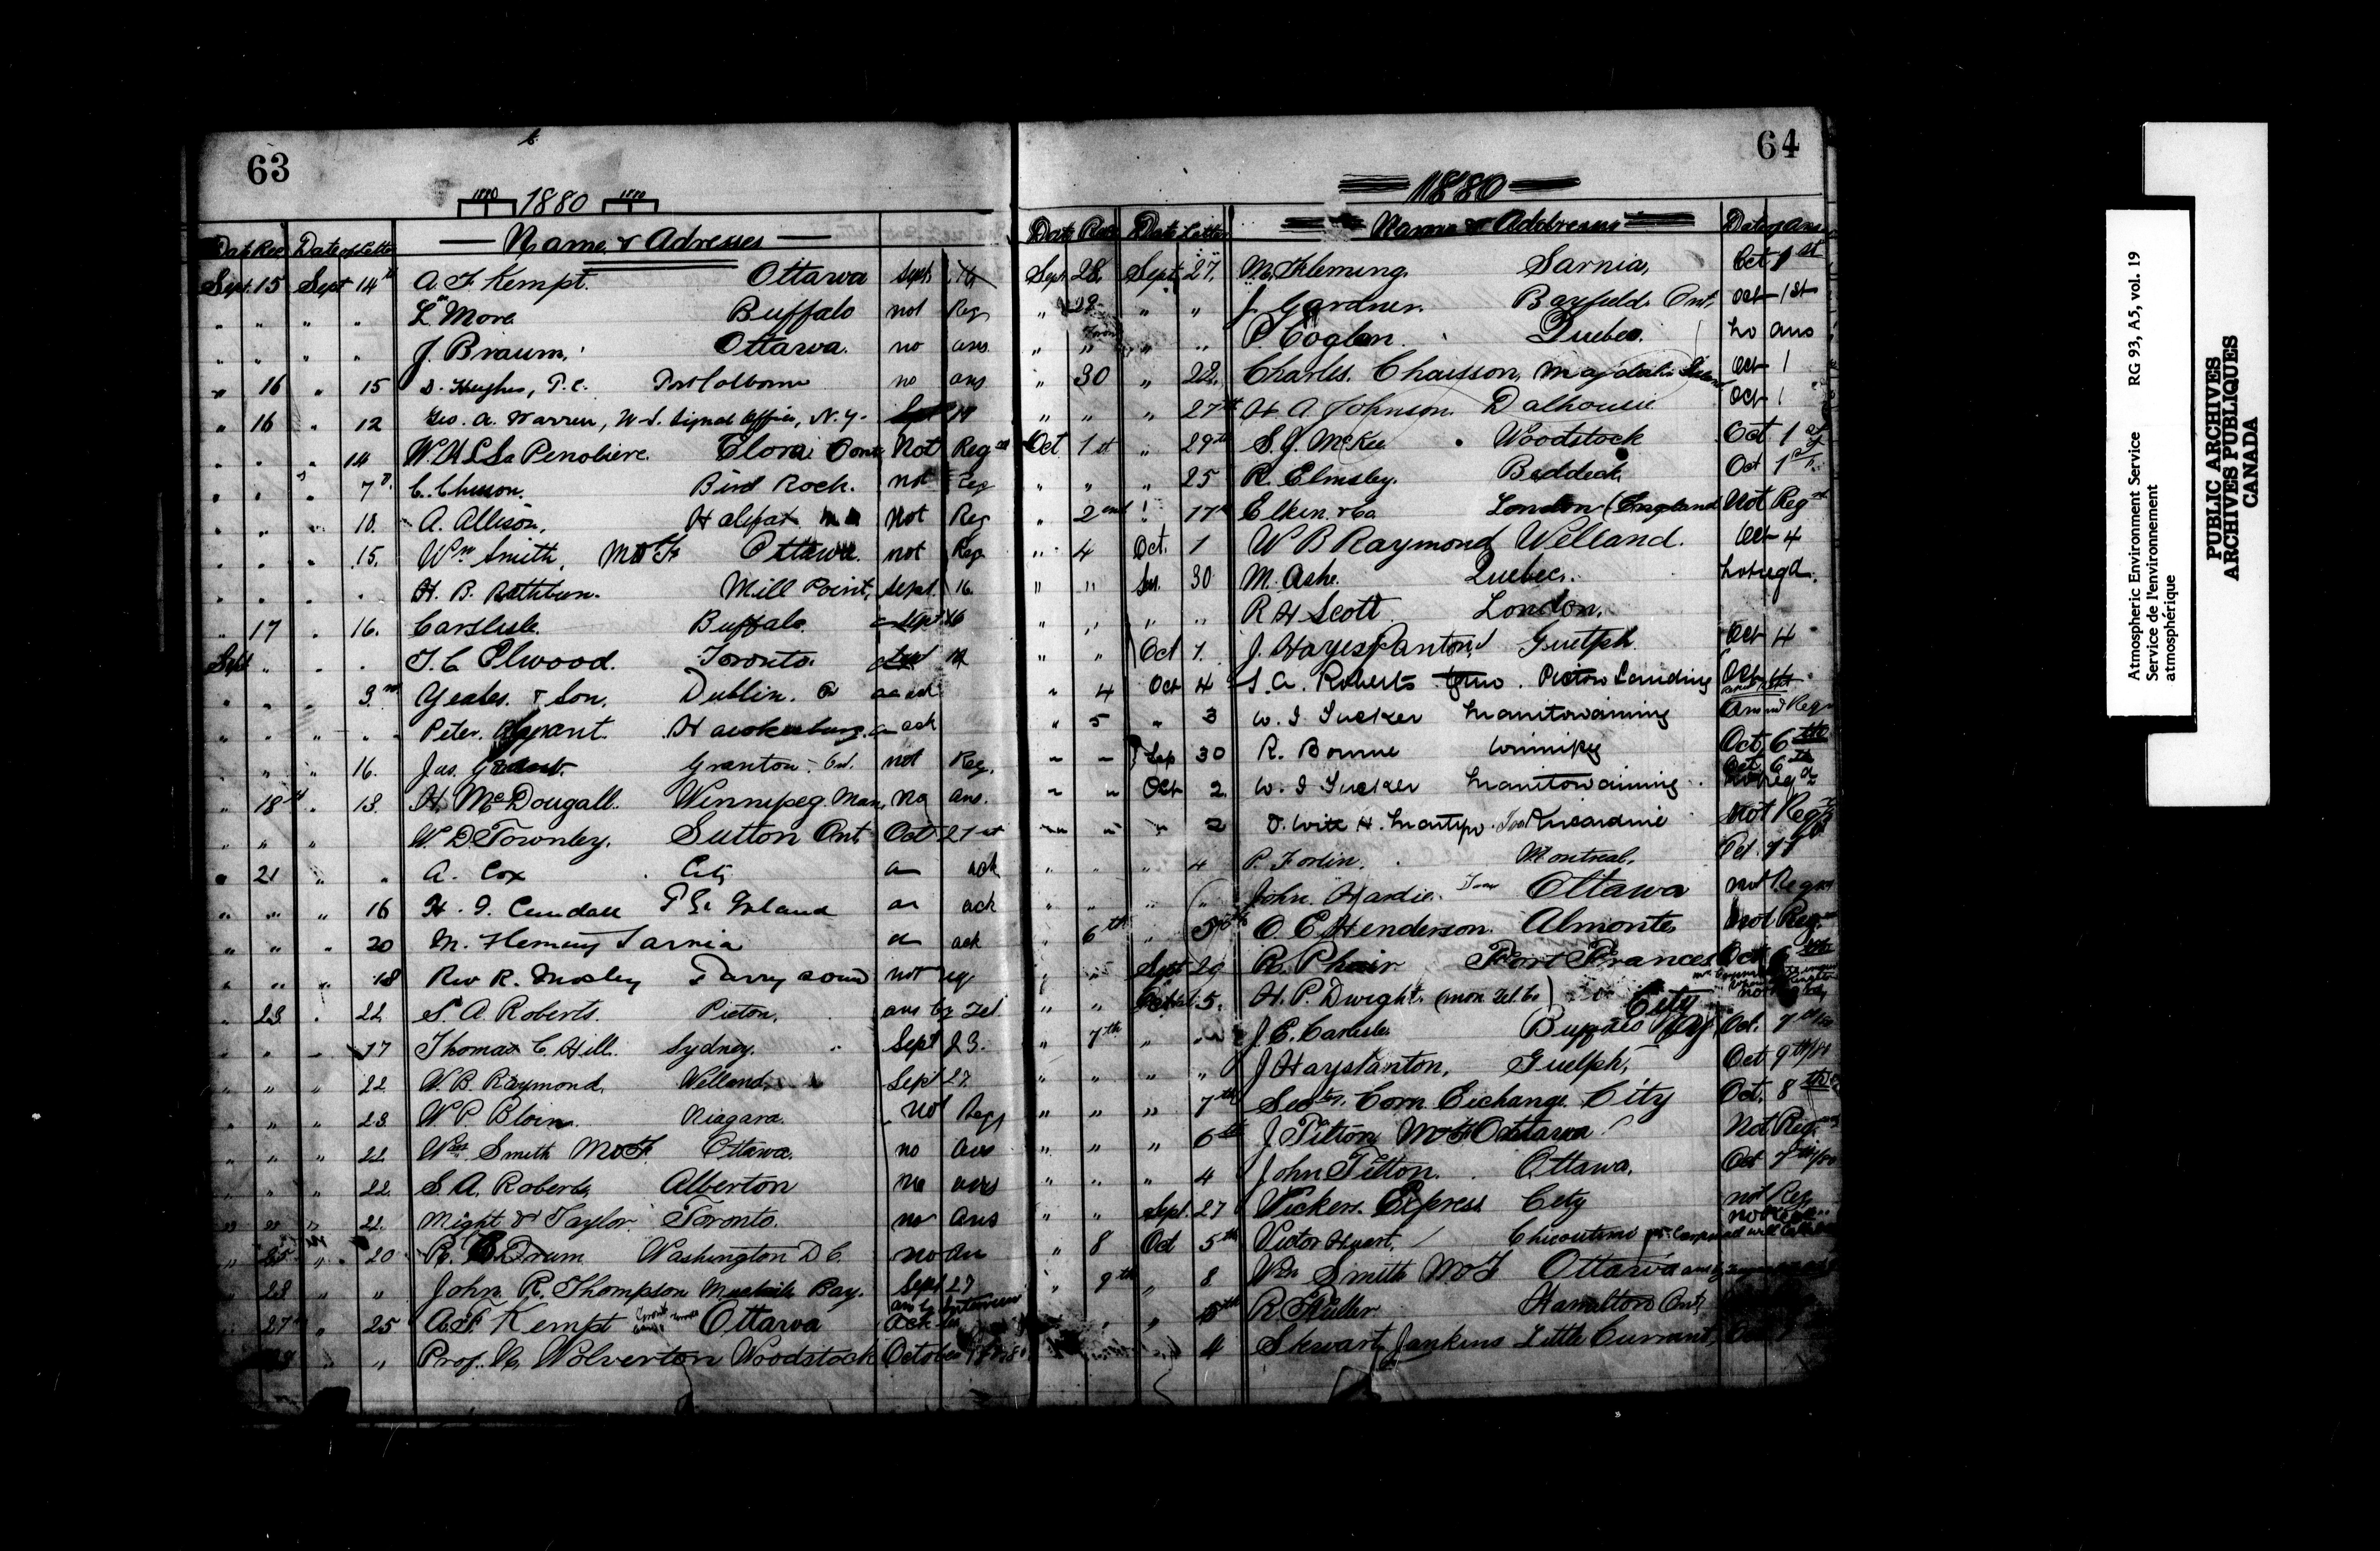 63
1880 1880 1880
Date Rec Date of Letter Name & Adresses
Sept. 15 Sept 14th A. F. Kempt. Ottawa Sept
" " " " L. More Buffalo not Reg
" " " " J. Braum. Ottawa. no ans
" 16 " 15 D. Hughes, P.C. Port Colborne no ans
" 16 " 12 Geo. A. Warren, U.S. Signal Office, N.Y.
" " " 14 Elora Ont Not Reg
" " " 7 C. Bird Rock. not Reg
" " " 10. A. Allison. Halifax Not Reg
" " " 15. Wm Smith, M of F Ottawa. not Reg
" " " " H. B. Rathbun. Mill Point, Sept 16.
" 17 " 16. Carslisle. Buffalo. Sept. 16
Sept " " " T. C. Elwood. Toronto.
" " " 3 Yeates. & Son. Dublin. an ack
" " " " Peter Hawkesbury. an ack
" " " 16. Jas. Grant. Granton. Ont. not Reg.
" 18th " 13. H. McDougall. Winnipeg. Man, no ans.
" " " W. D. Townley. Sutton Ont. Oct 21st
" 21 " " A. Cox City an ack
" " " 16 H. J. Cundall P.E. Island an ack
" " " 20 M. Fleming Sarnia an ack
" " " 18 Rev R. Mosley Parry Sound not reg
" 23 " 22. S. A. Roberts. Picton. ans by Tel
" " " 17 Thomas C. Hill. Sydney. Sept 23.
" " " 22 W. B. Raymond, Welland, Sept 27
" " " 23. W. P. Niagara. not Reg
" " " 22 Wm. Smith M of F. Ottawa. no ans
" " " 22. S. A. Roberts, Alberton no ans
" " " 22. Might & Taylor. Toronto. no ans
" 25 " 20 R. C. Drum. Washington D.C. no an
" 23 " " John. R. Thompson Bay. Sept 27
" 27 " 25 A. F. Kempt Ottawa ans by interview
" " Prof. N. Wolverton Woodstock October
64
1880
Date Rec Date Letter Name & Addresses Date of Ans
Sept 28. Sept. 27. M. Fleming. Sarnia, Oct 1st
" 29 " " J. Gardner. Bayfield Ont. Oct 1st
" " " " P. Coglan. Quebec. no ans
" 30 " 28. Charles. Chaisson, Magdalen Oct 1
" " " 27th H. A. Johnson. Dalhousie Oct 1
Oct 1st " 29th S. J. McKee Woodstock Oct 1st
" " " 25 R. Elmsley. Baddeck. Oct 1st
" 2nd " 17 Elkin & Co London (England Not Reqd
" 4 Oct. 1 W B Raymond Welland. Oct 4
" " Sep. 30 M. Ashe. Quebec. not reqd.
" " " " R H Scott London.
" " Oct 1. J. Hayes Panton, Guelph. Oct 4
" 4 Oct 4 S. A. Roberts Picton Landing Oct 4
" 5 " 3 W. J. Tucker Manitowaning
" " Sep 30 R. Bourne Winnipeg Oct 6th
" " Oct 2. W. J. Tucker Manitowaning. not reqd
" " " 2 D. Witt H. Martyn. Kincardine not Reqd
" " " 4 P. Fortin. Montreal. Oct. 11
" " " " John. Hardie. Ottawa not Reqd
" 6th " 5th O. E. Henderson. Almonte not Req
" " Sept 29 R. Phair Fort Frances Oct 6th
" " Oct. 5. H. P. Dwight. (Mon. Tel. Co) City
" 7th " " J. E. Carlisle. Buffalo N.Y. Oct. 7th
" " " " J Hays Panton. Guelph, Oct 9th/80
" " " 7th Secty. Corn. Exchange. City Oct. 8th
" " " 6th J. Tilton M of F Ottawa Not Req
" " " 4 John Tilton. Ottawa. Oct 7th/80
" " Sept. 27 Vickers. Express City not Req
" 8 Oct 5th Victor Huart. Chicoutimi
" 9th " 8 Wm Smith M of F Ottawa
" " 5th R. Hamilton Ont,
" 4 Stewart Jenkins Little Currant, Oct
Atmospheric Environment Service RG 93, A5, vol. 19
Service de l'environnement
atmosphérique
PUBLIC ARCHIVES
ARCHIVES PUBLIQUES
CANADA